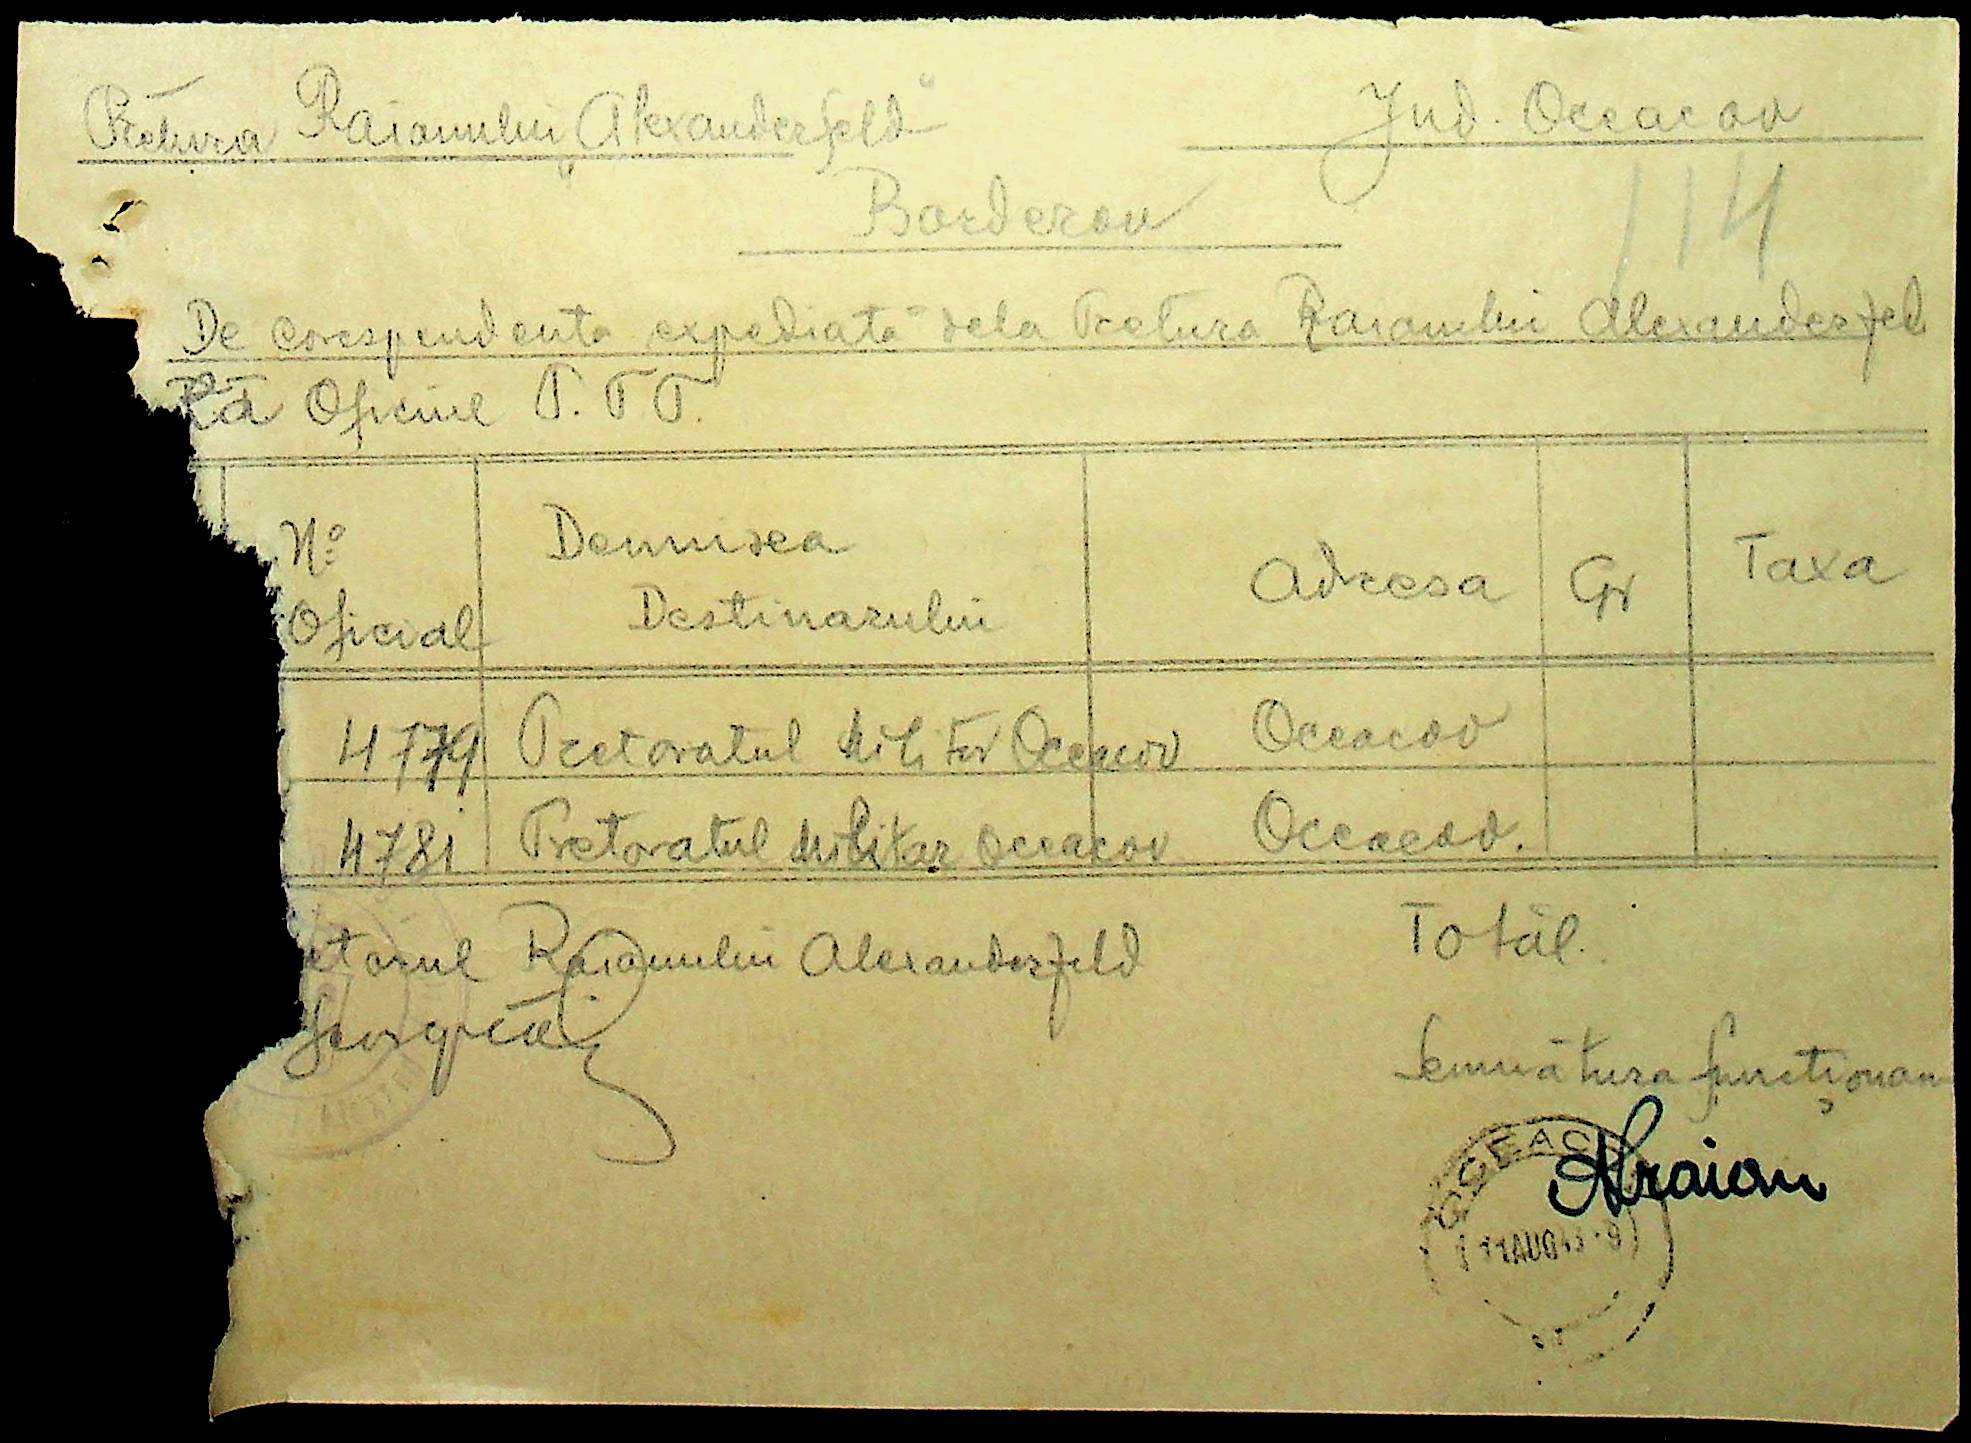 Pretura Raionului „Alexanderfeld" Jud. Oceacov
114
Borderou
De corespondenta expediata dela Pretura Raionului Alexanderfeld
La Oficiul P.T.T.
No Oficial Denumirea Destinarului Adresa Gr Taxa
4779 Pretoratul Militar Oceacov Oceacov
4781 Pretoratul Militar Oceacov Oceacov.
etorul Raionului Alexanderfeld Total.
Semnătura funcționar
OCEAC
11 AUG 43 · 9